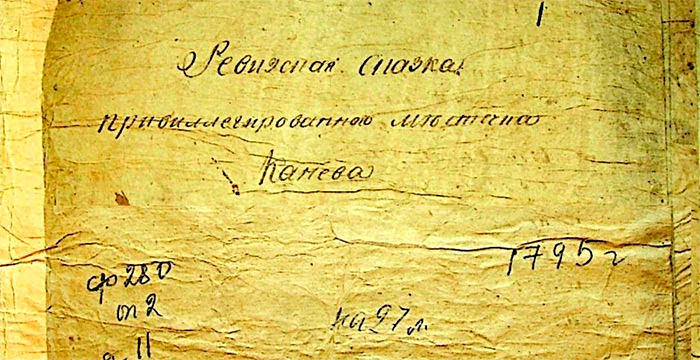 1
Ревизская сказка
привиллегированного местечка
Канева
1795 г
ф 280
оп 2
на 97 л.
11